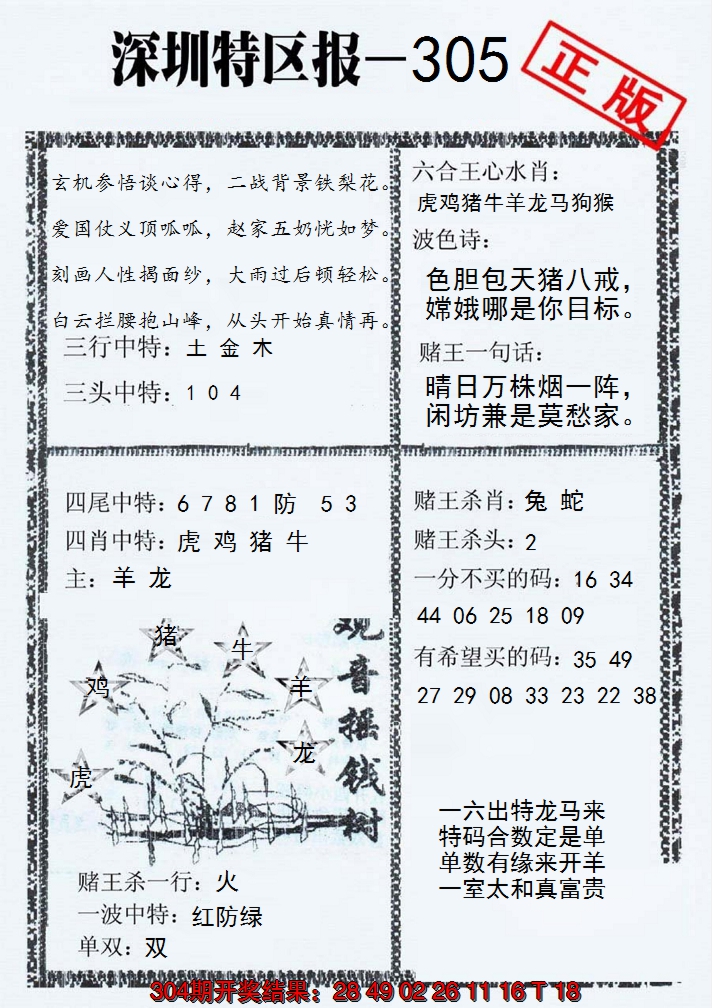 深圳特区报—305
正版
玄机参悟谈心得，二战背景铁梨花。
爱国仗义顶呱呱，赵家五奶恍如梦。
刻画人性揭面纱，大雨过后顿轻松。
白云拦腰抱山峰，从头开始真情再。
三行中特：土 金 木
三头中特：1 0 4
六合王心水肖：
虎鸡猪牛羊龙马狗猴
波色诗：
色胆包天猪八戒，
嫦娥哪是你目标。
赌王一句话：
晴日万株烟一阵，
闲坊兼是莫愁家。
四尾中特：6 7 8 1 防 5 3
四肖中特：虎 鸡 猪 牛
主：羊 龙
猪
牛
鸡
羊
龙
虎
观音摇钱树
赌王杀一行：火
一波中特：红防绿
单双：双
赌王杀肖：兔 蛇
赌王杀头：2
一分不买的码：16 34
44 06 25 18 09
有希望买的码：35 49
27 29 08 33 23 22 38
一六出特龙马来
特码合数定是单
单数有缘来开羊
一室太和真富贵
304期开奖结果：28 49 02 26 11 16 T 18